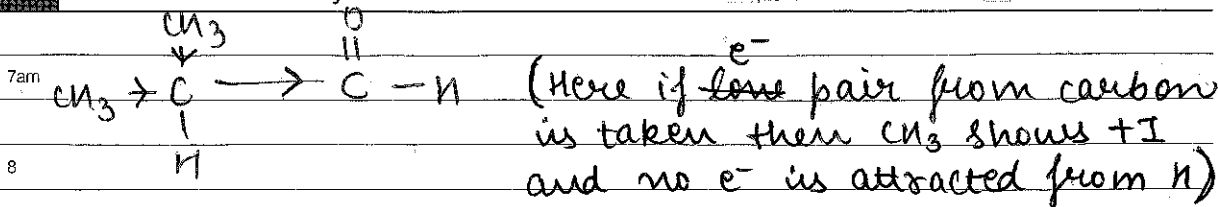 CH3 O
||
7am CH3 → C → C - H (Here if e⁻ pair from carbon
| is taken then CH3 shows +I
8 H and no e⁻ is attracted from H)